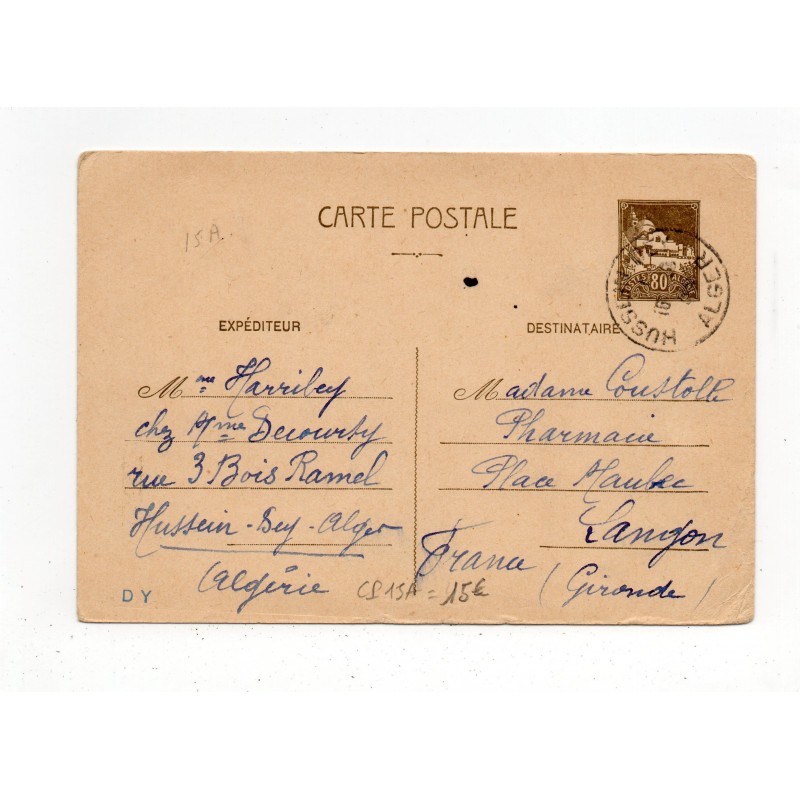 CARTE POSTALE
15A.
POSTES 80 ALGÉRIE
HUSSEIN ALGER
EXPÉDITEUR
Mme Harribey
chez Mme Decourty
rue 3. Bois Ramel
Hussein-Dey-Alger
Algérie
DESTINATAIRE
Madame Coustolle
Pharmacie
Place Maubec
Langon
France (Gironde)
CP 15A = 15€
DY